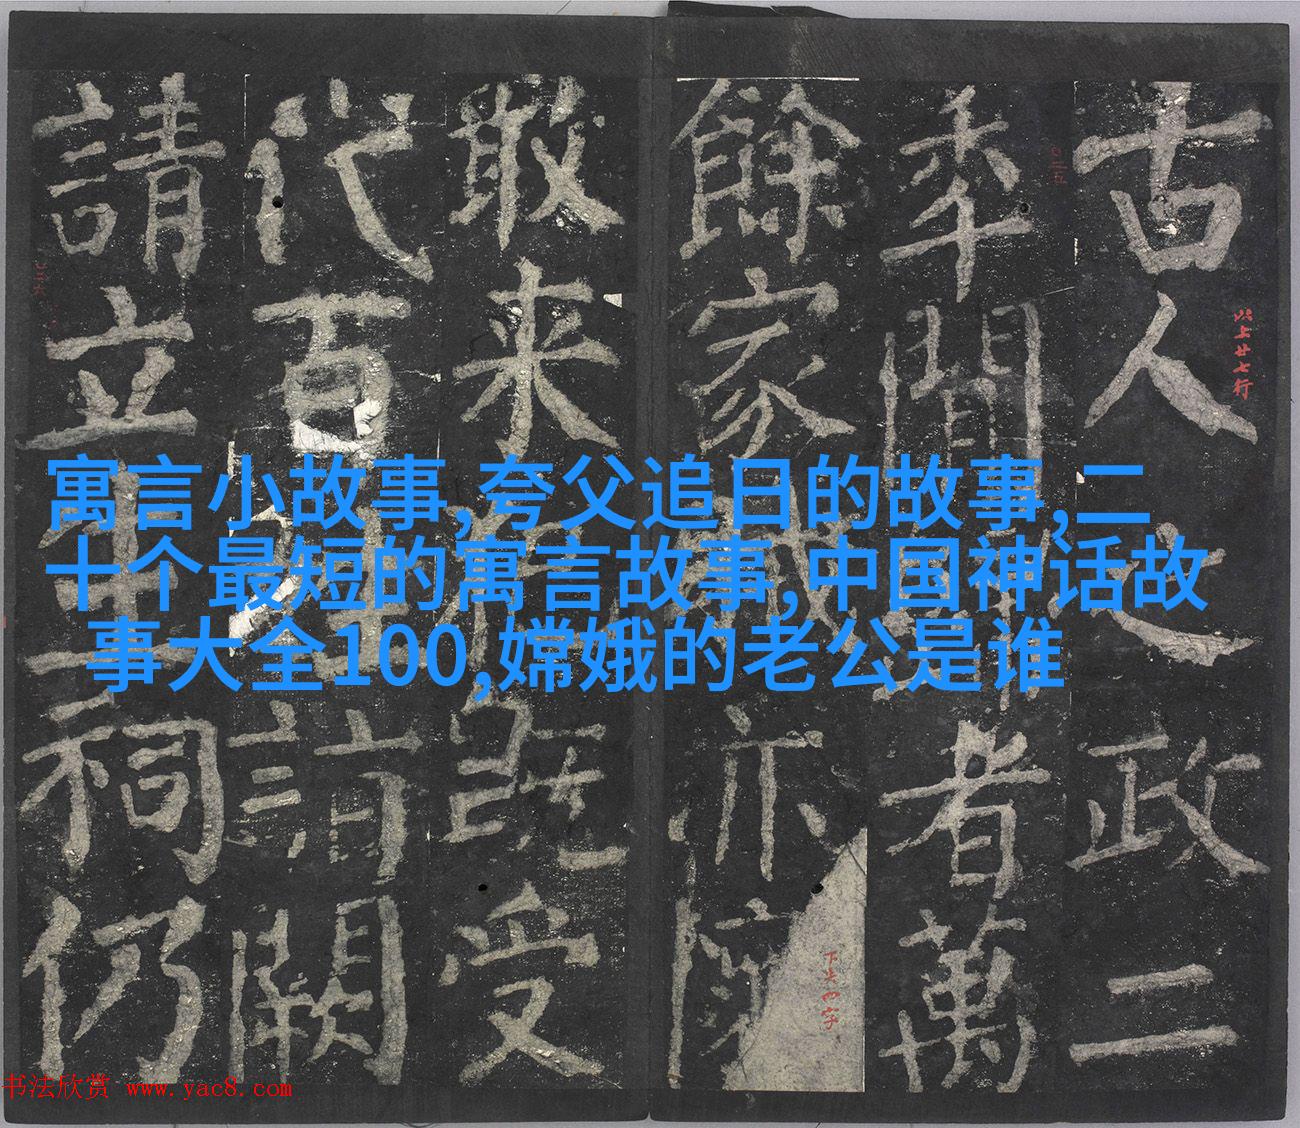 古人之政二
秊間歸者萬
餘家賊亦懷
敢来犯既受
代百姓詣闕
請立生祠仍
以上廿七行
下失四字
寓言小故事,夸父追日的故事,二
十个最短的寓言故事,中国神话故
事大全100,嫦娥的老公是谁
书法欣赏 www.yac8.com